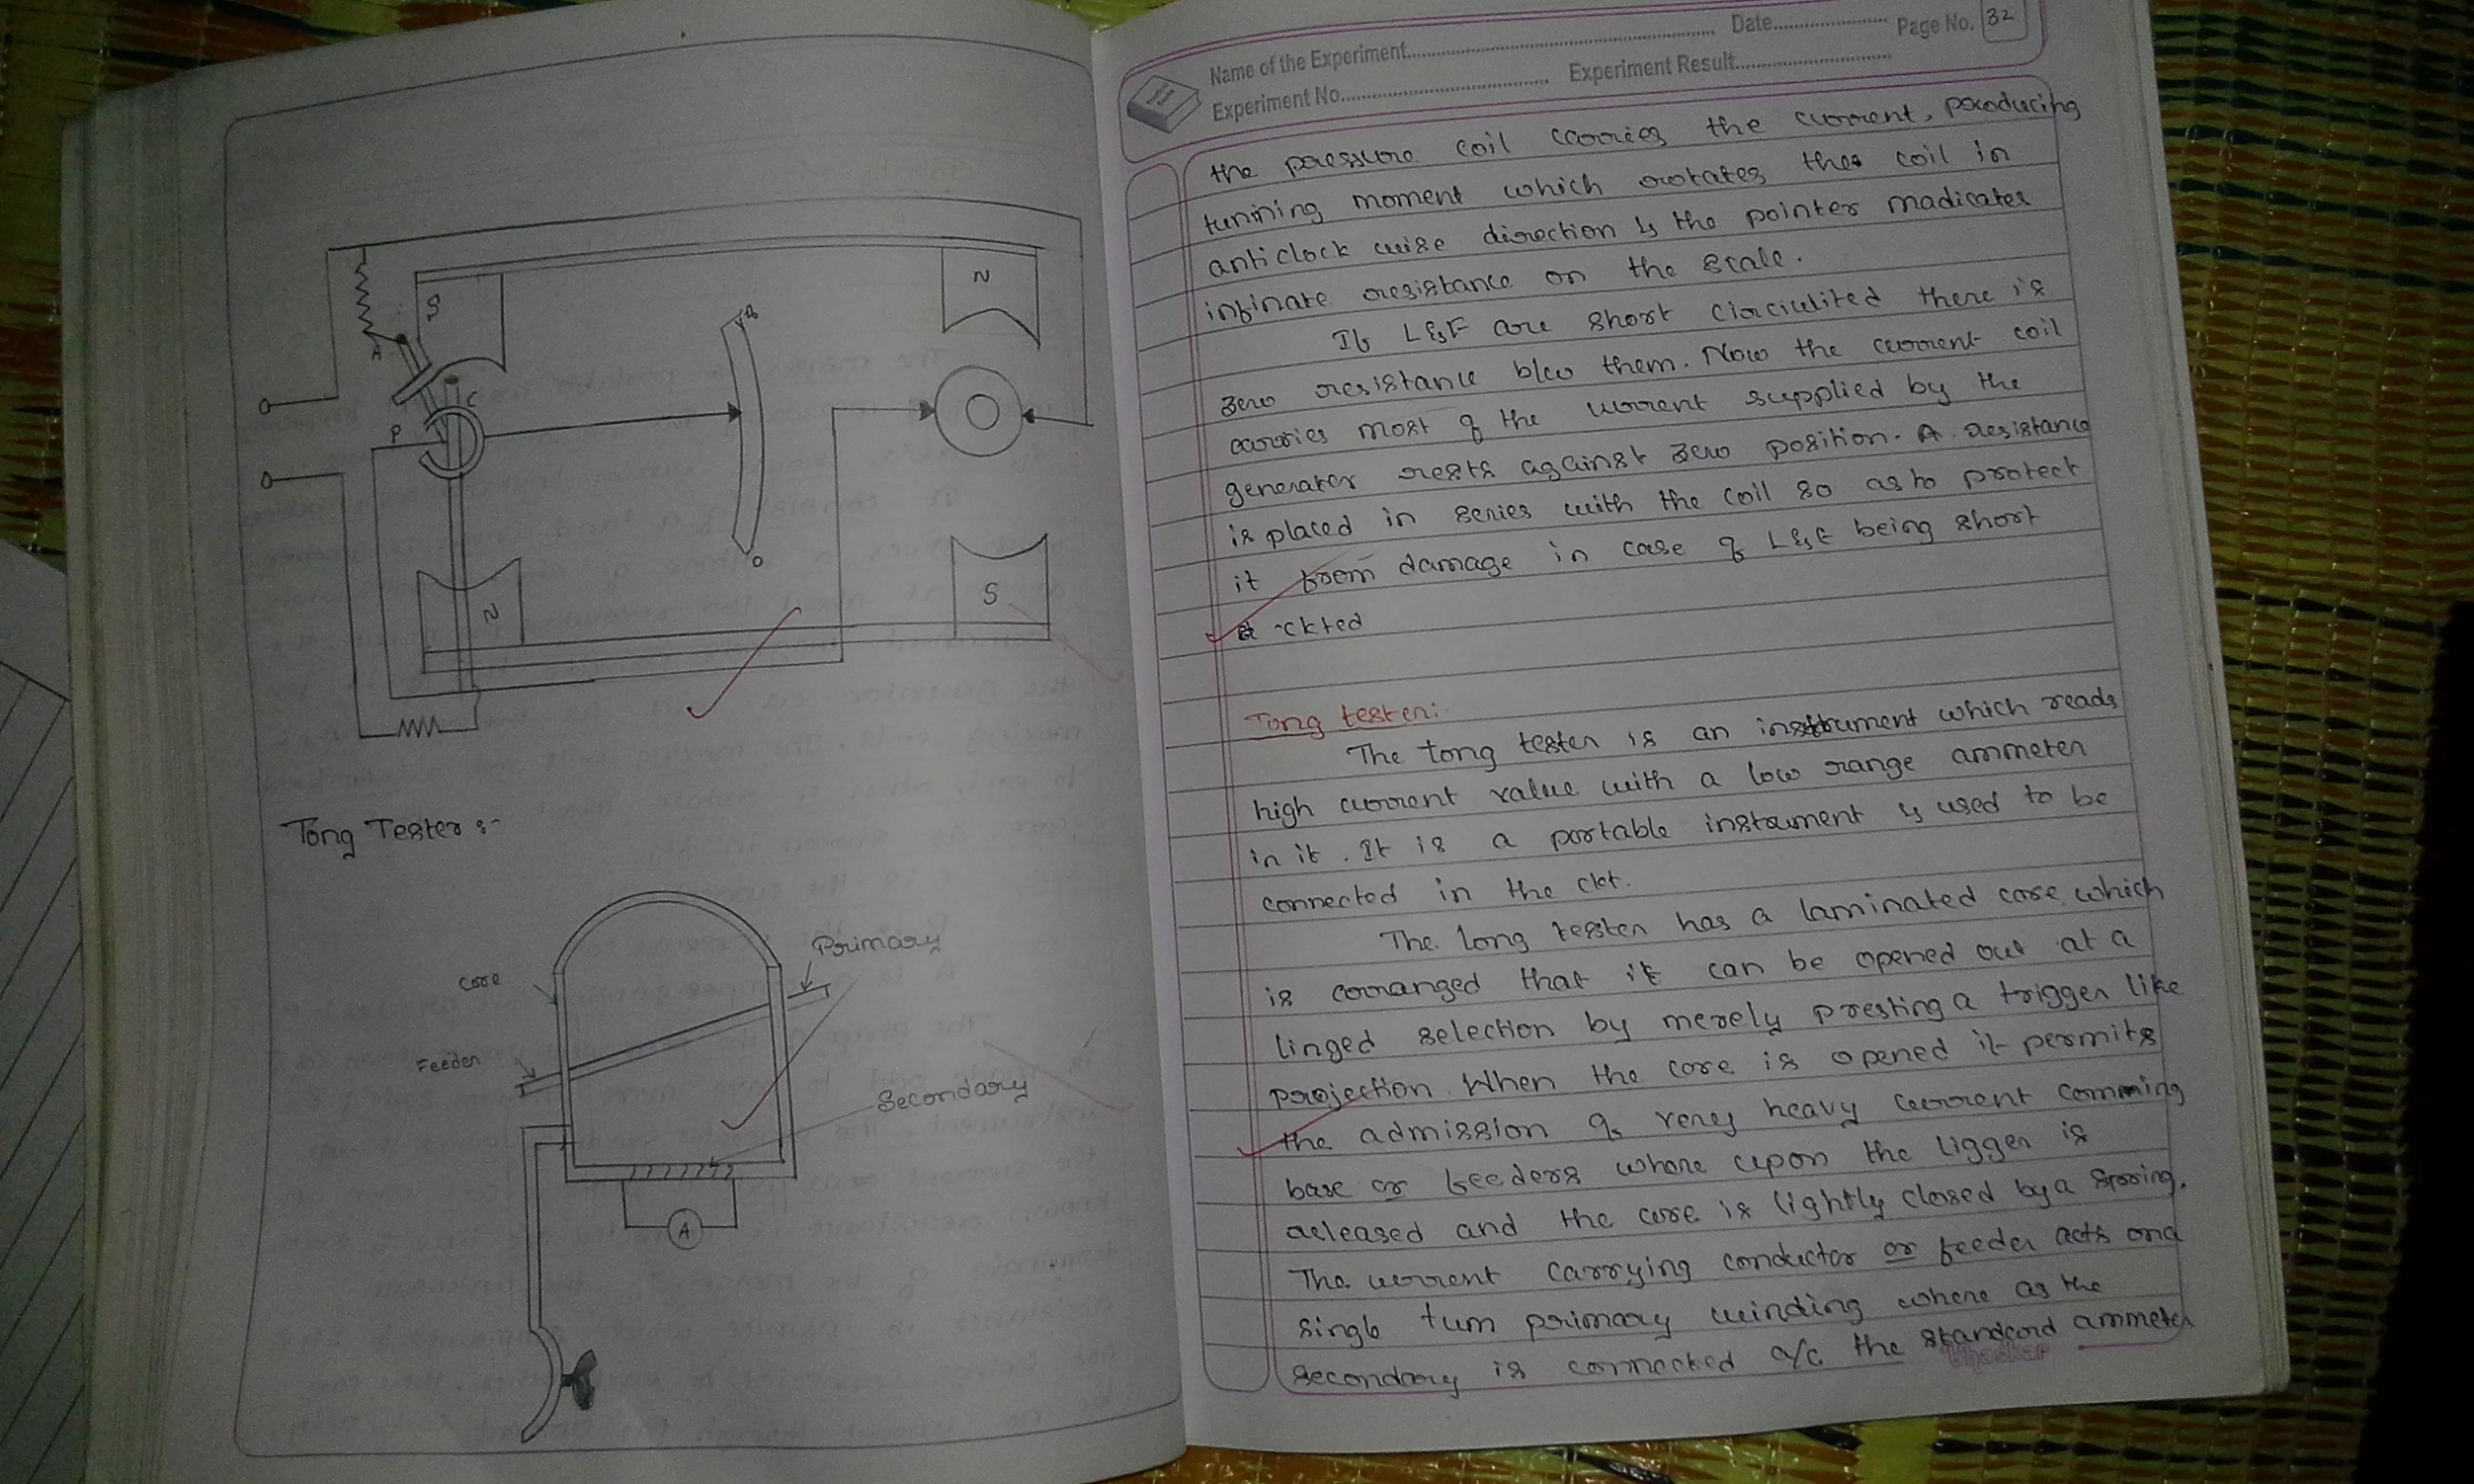 S
N
A
C
P
0
N
S
Tong Tester :-
Primary
core
Feeder
Secondary
A
Name of the Experiment........ Date........ Page No. 32
Experiment No........ Experiment Result........
the pressure coil carries the current, producing
tunining moment which rotates thes coil in
anticlock wise direction & the pointer madicates
infinate resistance on the scale.
If L&E are short circiulited there is
zero resistance blw them. Now the current coil
carries most of the current supplied by the
generator rests against zero position. A resistance
is placed in series with the coil so as to protect
it from damage in case of L&E being short
-ckted
Tong tester:
The tong tester is an instrument which reads
high current value with a low range ammeter
in it. It is a portable instrument & used to be
connected in the ckt.
The long tester has a laminated core which
is arranged that it can be opened out at a
linged selection by merely presting a trigger like
projection. When the core is opened it permits
the admission of very heavy current comming
base or feeders whore upon the ligger is
released and the core is lightly closed by a spring.
The current carrying conductor or feeder acts and
singb turn primary winding where as the
secondary is connected a/c the standard ammeter
Bhaskar